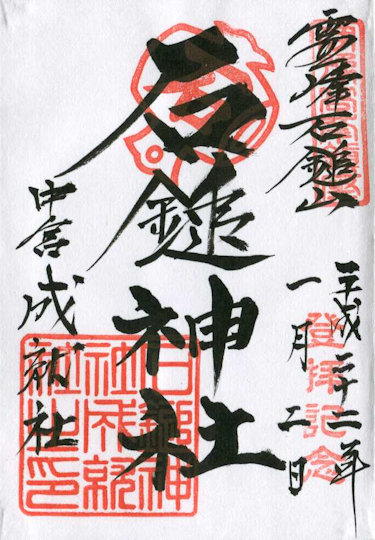 霊峰石鎚山
平成二十二年
一月二日
登拝記念
石鎚神社
中宮成就社
石鎚神
社成就
社之印